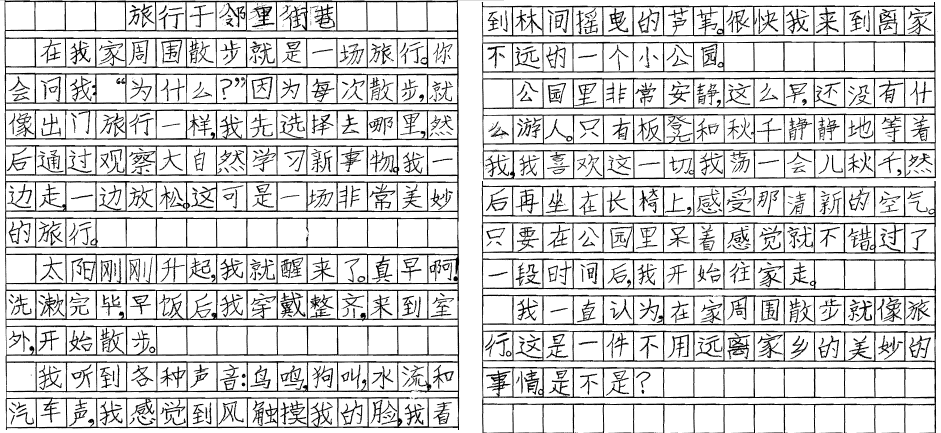 旅行于邻里街巷
在我家周围散步就是一场旅行。你
会问我:“为什么?”因为每次散步,就
像出门旅行一样,我先选择去哪里,然
后通过观察大自然学习新事物。我一
边走,一边放松。这可是一场非常美妙
的旅行。
太阳刚刚升起,我就醒来了。真早啊!
洗漱完毕,早饭后,我穿戴整齐,来到室
外,开始散步。
我听到各种声音:鸟鸣,狗叫,水流,和
汽车声,我感觉到风触摸我的脸,我看
到林间摇曳的芦苇。很快我来到离家
不远的一个小公园。
公园里非常安静,这么早,还没有什
么游人。只有板凳和秋千静静地等着
我,我喜欢这一切。我荡一会儿秋千,然
后再坐在长椅上,感受那清新的空气。
只要在公园里呆着感觉就不错。过了
一段时间后,我开始往家走。
我一直认为,在家周围散步就像旅
行。这是一件不用远离家乡的美妙的
事情。是不是?